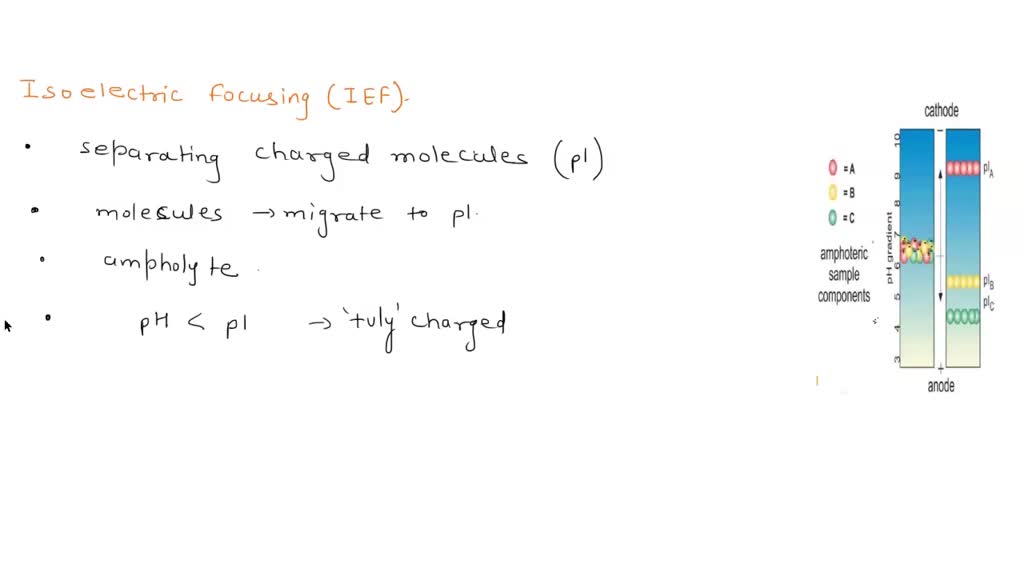 Isoelectric focusing (IEF).
• separating charged molecules (pI)
• molecules → migrate to pI.
• ampholyte.
• pH < pI → 'tuly' charged
cathode
−
10
9
8
7
6
5
4
3
pH gradient
= A
= B
= C
amphoteric
sample
components
pIA
pIB
pIC
+
anode